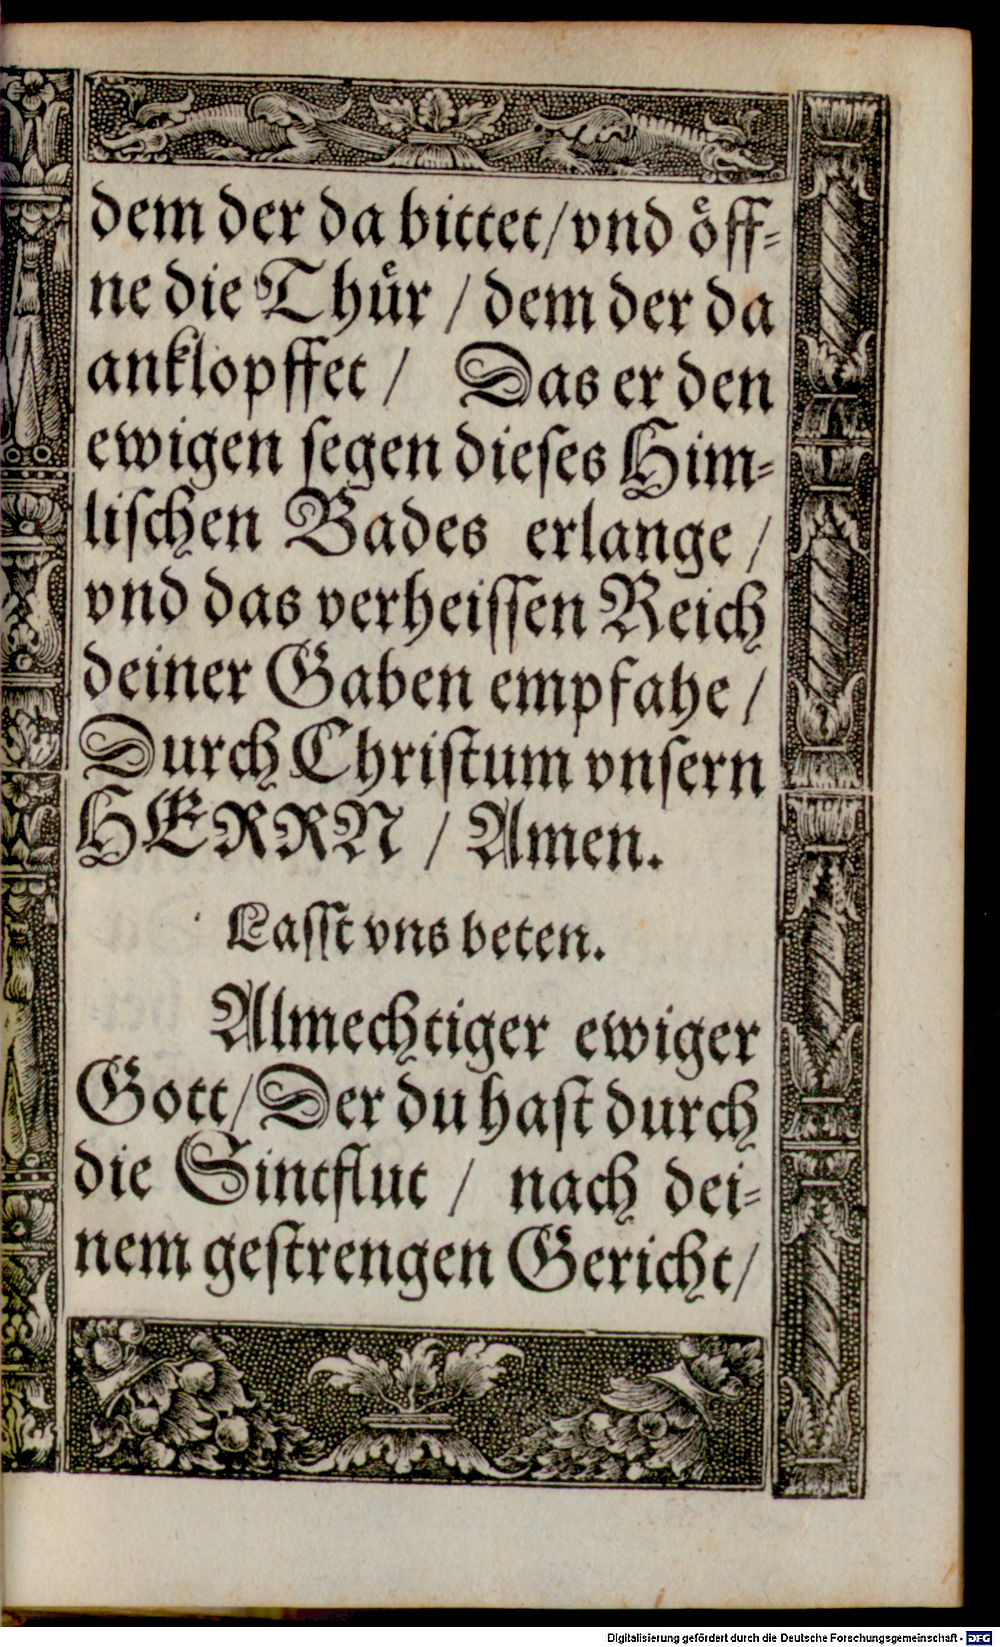 dem der da bittet/vnd öff-
ne die Thür / dem der da
anklopffet / Das er den
ewigen segen dieses Him-
lischen Bades erlange /
vnd das verheissen Reich
deiner Gaben empfahe /
Durch Christum vnsern
HERRN / Amen.
Lasst vns beten.
Almechtiger ewiger
Gott/Der du hast durch
die Sintflut / nach dei-
nem gestrengen Gericht/
Digitalisierung gefördert durch die Deutsche Forschungsgemeinschaft - DFG